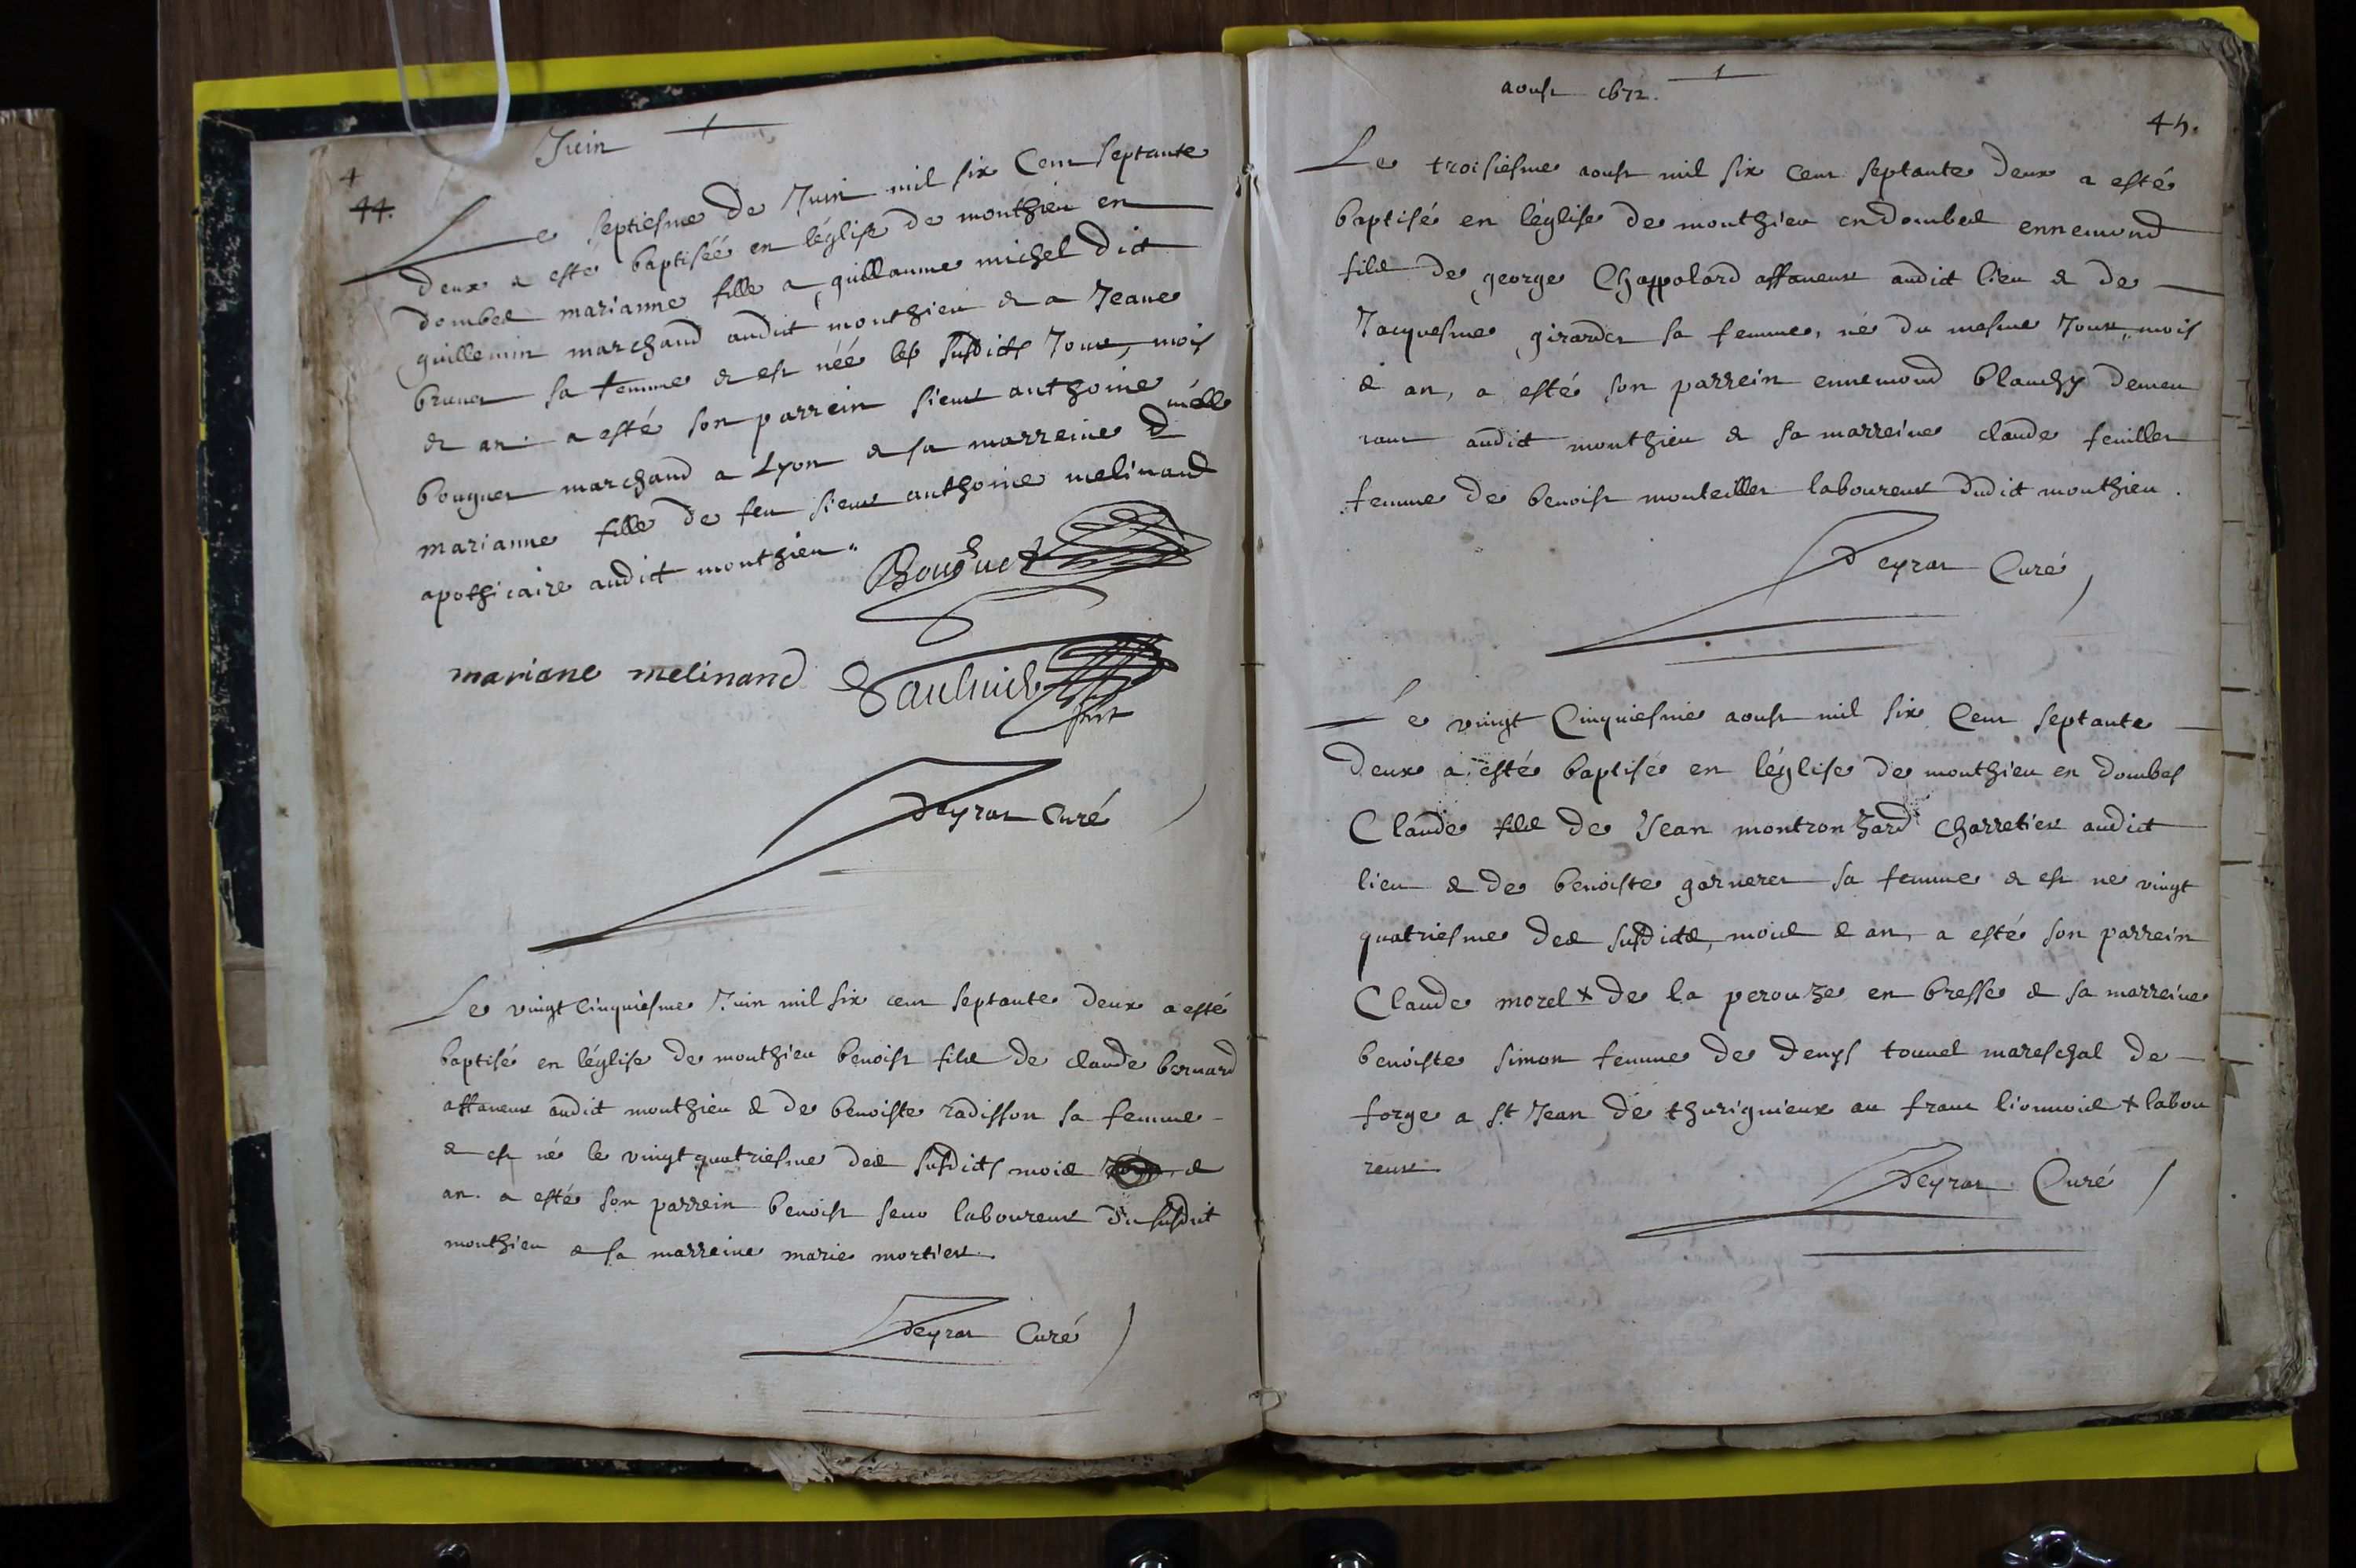 Juin
44.
Le septiesme de Juin mil six Cent septante
deux a esté baptiséé en léglise de monthieu en
dombes marianne fille a guillaume michel dict
guillemin marchand audit monthieu & a Jeane
brunet sa femme & est néé les susdicts Jour, mois
& an. a esté son parrein sieur anthoine
bouguet marchand a Lyon & sa marreine d melle
marianne fille de feu sieur anthoine melinand
apothicaire audict monthieu.
Bouguet
mariane melinand
Deyrat Curé
Le vingt Cinquiesme Juin mil six cent septante deux a esté
baptisé en léglise de monthieu benoist fils de claude bernard
affaneur audit monthieu & de benoiste radisson sa femme
& est né le vingt quatriesme des susdicts mois & 
an. a esté son parrein benoist seuo laboureur du susdit
monthieu & sa marreine marie mortier.
Deyrat Curé
aoust 1672.
45.
Le troisiesme aoust mil six cent septante deux a esté
baptisé en léglise de monthieu en dombes ennemond
fils de george Chappolard affaneur audict lieu & de
Jacquesme girardet sa femme, né du mesme Jour, mois
& an, a esté son parrein ennemond blanchy demeu
rant audict monthieu & sa marreine claude feuillet
femme de benoist monteillet laboureur dudict monthieu.
Deyrat Curé
Le vingt Cinquiesme aoust mil six Cent septante
deux a esté baptisé en léglise de monthieu en dombes
Claude fils de Jean montronzard charretier audict
lieu & de benoiste garneret sa femme & est né vingt
quatriesme des susdicts, mois & an, a esté son parrein
Claude morel + de la perouze en bresse & sa marreine
benoiste simon femme de denys touuel mareschal de
forge a St Jean de thurignieux au franc lionnois + labou
reur
Deyrat Curé